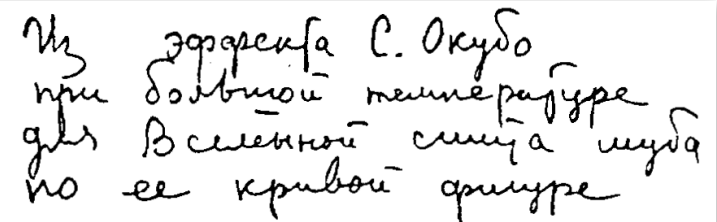 Из эффекта С. Окубо
при большой температуре
для Вселенной сшита шуба
по ее кривой фигуре